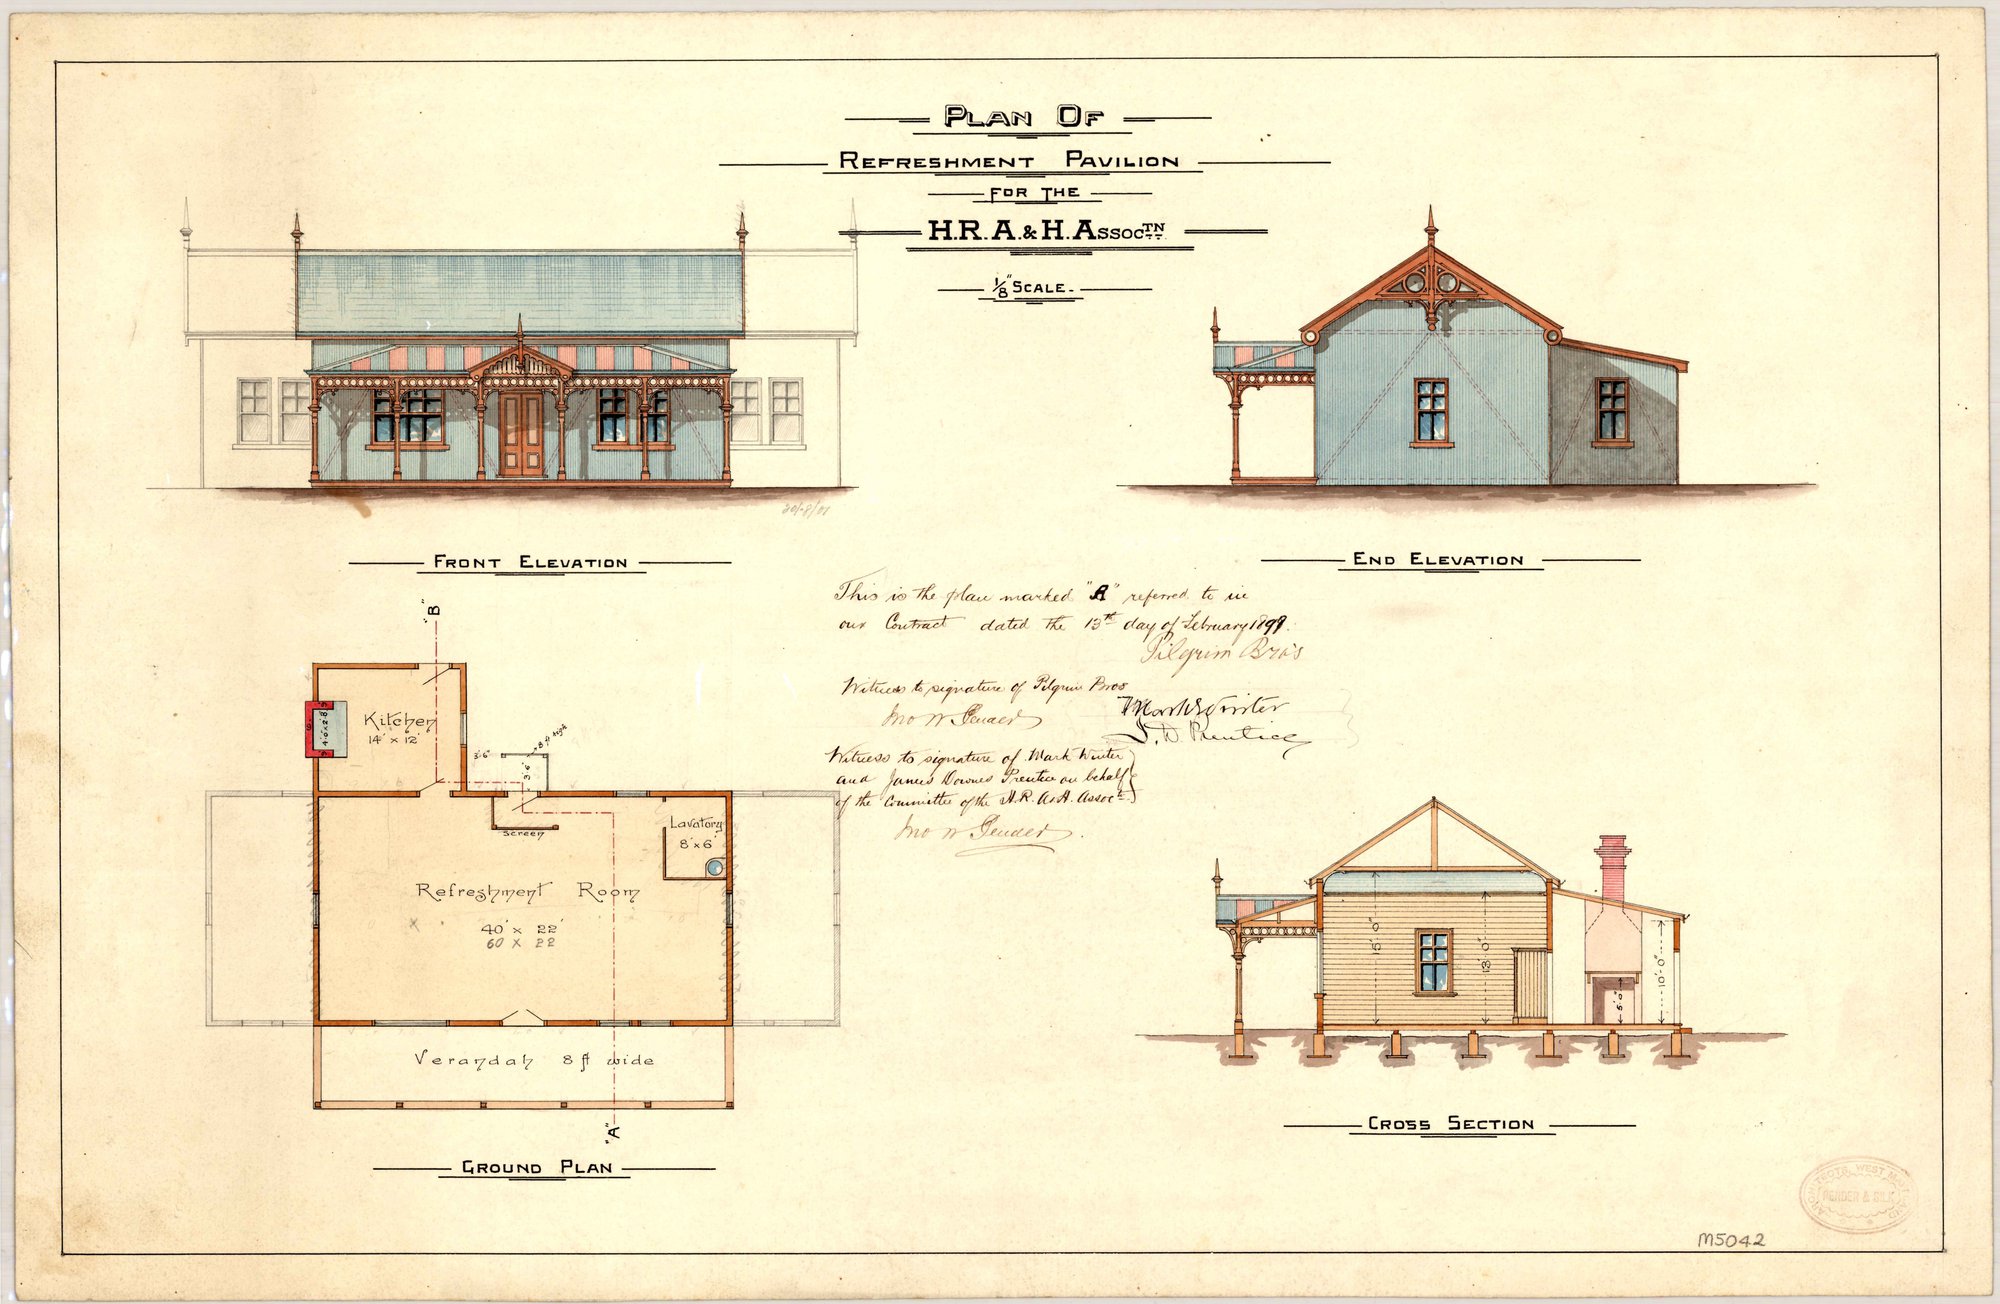 PLAN OF
REFRESHMENT PAVILION
FOR THE
H.R.A.& H. ASSOCTN
1/8" SCALE.
20/8/01
FRONT ELEVATION
END ELEVATION
This is the plan marked "A" referred to in
our Contract dated the 13th day of February 1899.
Pilgrim Bros
Witness to signature of Pilgrim Bros
Jno W Pender
Mark Winter
J. D Prentice
Witness to signature of Mark Winter
and James Downes Prentice on behalf
of the Committee of the H.R. A&H. Assoctn.
Jno W Pender
"B"
Kitchen
14' x 12'
4'.6" x 2'.8"
3'.6"
3'.6"
8 ft high
Screen
Lavatory
8' x 6'
Refreshment Room
40' x 22'
60 x 22
Verandah 8 ft wide
"A"
GROUND PLAN
15'.0"
13'.0"
5'.0"
10'.0"
CROSS SECTION
ARCHITECTS, WEST MAITLAND
PENDER & SILK
M5042